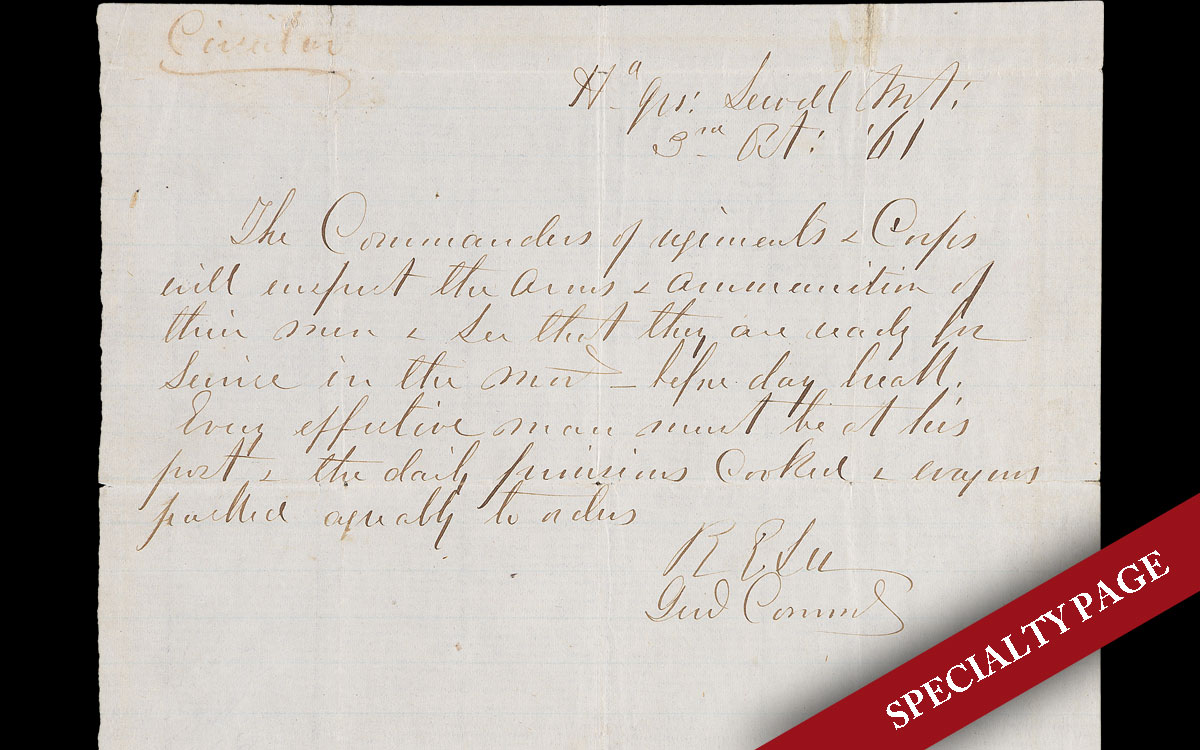 Circular
Hd Qrs: Sewell Mt:
3rd Oct: '61
The Commanders of regiments & Corps
will inspect the arms & ammunition of
their men & see that they are ready for
service in the mor — before day break.
Every effective man must be at his
post & the daily provisions Cooked & wagons
packed agreeably to orders
R E Lee
Genl Commd
SPECIALTY PAGE